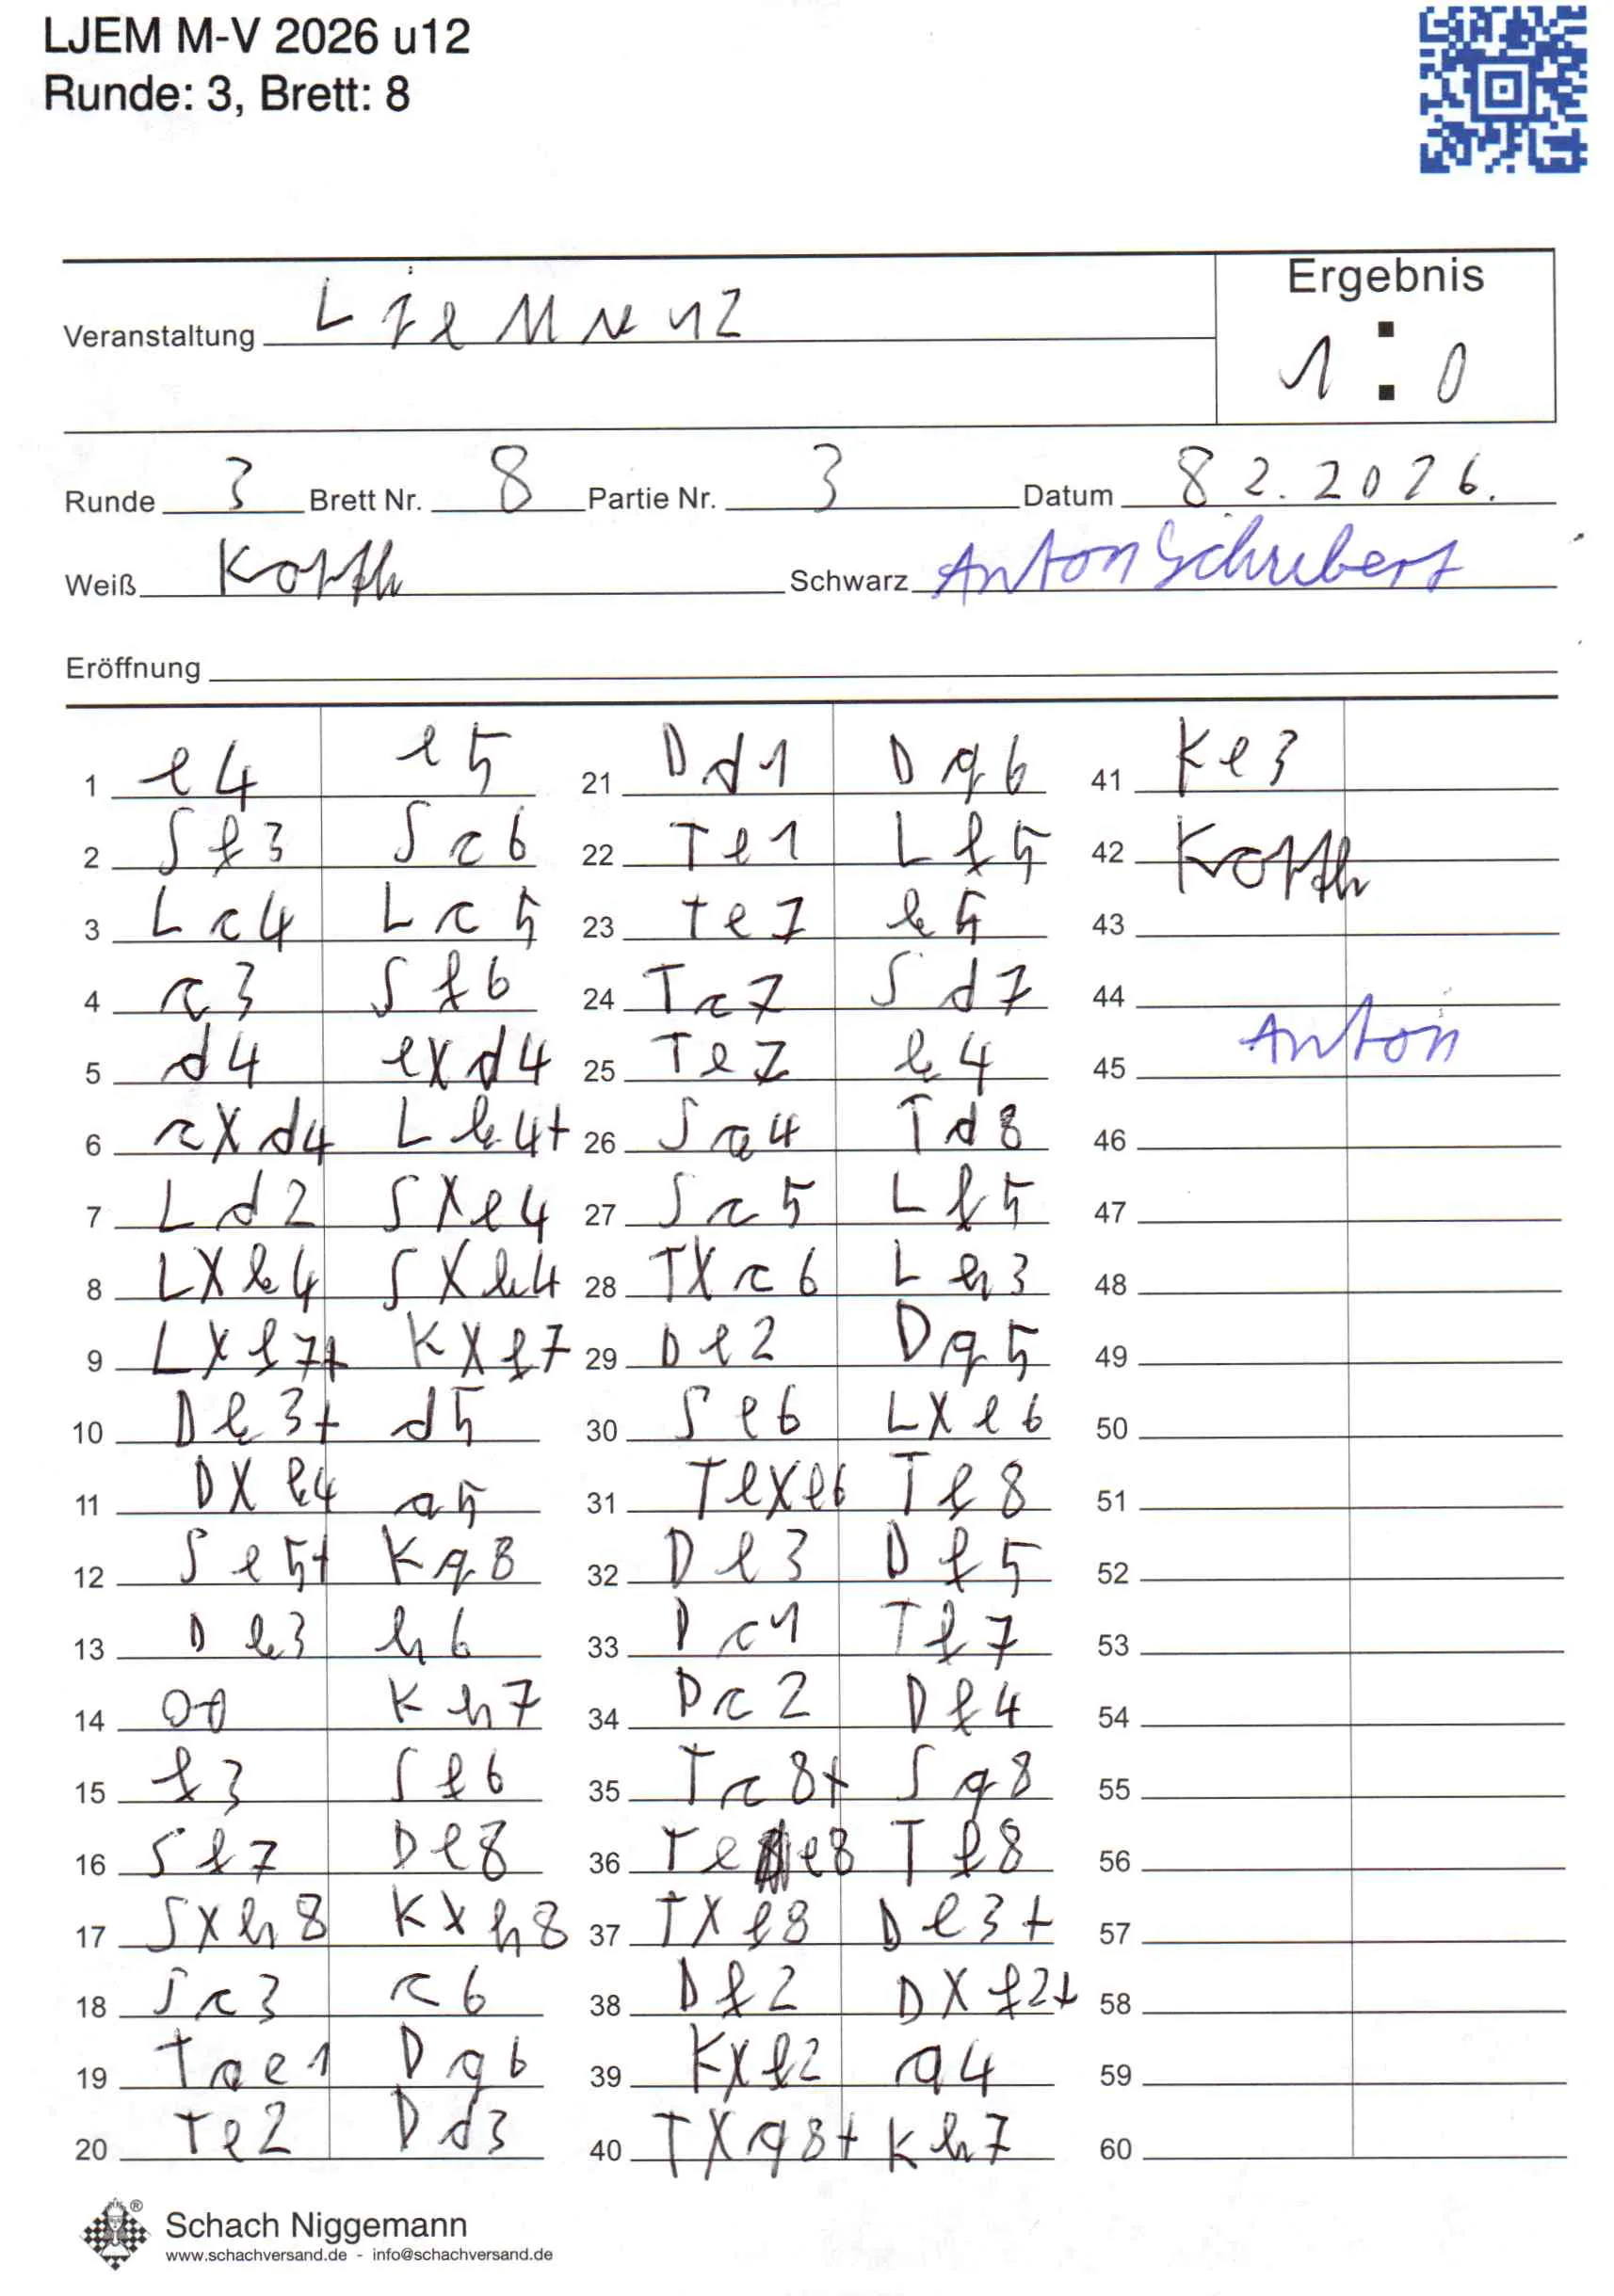 LJEM M-V 2026 u12
Runde: 3, Brett: 8
Ergebnis
Veranstaltung LJeM MV u12
1 : 0
Runde 3 Brett Nr. 8 Partie Nr. 3 Datum 8 2. 2026.
Weiß Schwarz Anton
Eröffnung
1 e4 e5 21 Dd1 Dg6 41 Ke3
2 Sf3 Sc6 22 Te1 Lf5 42
3 Lc4 Lc5 23 te7 b5 43
4 c3 Sf6 24 Tc7 Sd7 44
5 d4 exd4 25 Te7 b4 45 Anton
6 cXd4 Lb4+ 26 Sa4 Td8 46
7 Ld2 SXe4 27 Sc5 Lf5 47
8 LXb4 SXb4 28 TXc6 Lh3 48
9 LXf7+ KXf7 29 De2 Dg5 49
10 Db3+ d5 30 Se6 LXe6 50
11 DXb4 a5 31 TeXe6 Tf8 51
12 Se5+ Kg8 32 De3 Df5 52
13 Db3 h6 33 Dc1 Tf7 53
14 00 Kh7 34 Dc2 Df4 54
15 f3 Sf6 35 Tc8+ Sg8 55
16 Sf7 De8 36 Te e8 Tf8 56
17 SXh8 KXh8 37 TXf8 De3+ 57
18 Sc3 c6 38 Df2 DXf2+ 58
19 Tae1 Dg6 39 KXf2 a4 59
20 Te2 Dd3 40 TXg8+ Kh7 60
®
Schach Niggemann
www.schachversand.de - info@schachversand.de